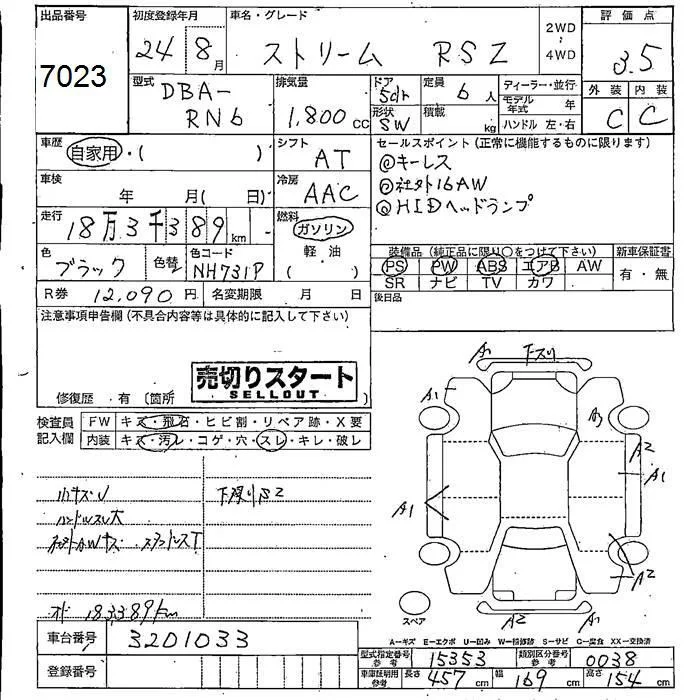 出品番号
7023
初度登録年月
24年8月
車名・グレード
ストリーム RSZ
2WD
4WD
評価点
3.5
外装 内装
C C
型式
DBA-
RN6
排気量
1,800 cc
ドア
5dr
形状
SW
定員
6 人
積載
kg
ディーラー・並行
モデル年式 年
ハンドル 左・右
車歴
自家用・( )
シフト
AT
セールスポイント (正常に機能するものに限ります)
◎キーレス
◎社外16AW
◎HIDヘッドランプ
車検
年 月( 日)
冷房
AAC
走行
18万3千389km
燃料
ガソリン
軽油
( )
色
ブラック
色替
色コード
NH731P
装備品 (純正品に限り○をつけて下さい)
新車保証書
PS PW ABS エアB AW
有・無
SR ナビ TV カワ
R券 12,090円
名変期限 月 日
後日品
注意事項申告欄 (不具合内容等は具体的に記入して下さい)
売切りスタート
SELLOUT
修復歴 有 〔箇所
検査員
記入欄
FW キズ・飛石・ヒビ割・リペア跡・X要
内装 キズ・汚レ・コゲ・穴・スレ・キレ・破レ
A1 下スリ
A1
A3
A2
A1
A1
A2
スペア
A2 A1
小キズ
ハンドルスレ大
183389km
A…キズ E…エクボ U…凹み W…補修跡 S…サビ C…腐食 XX…交換済
車台番号
3201033
登録番号
型式指定番号
参考
15353
類別区分番号
参考
0038
車庫証明用
参考
長さ 457cm 幅 169cm 高さ 154cm